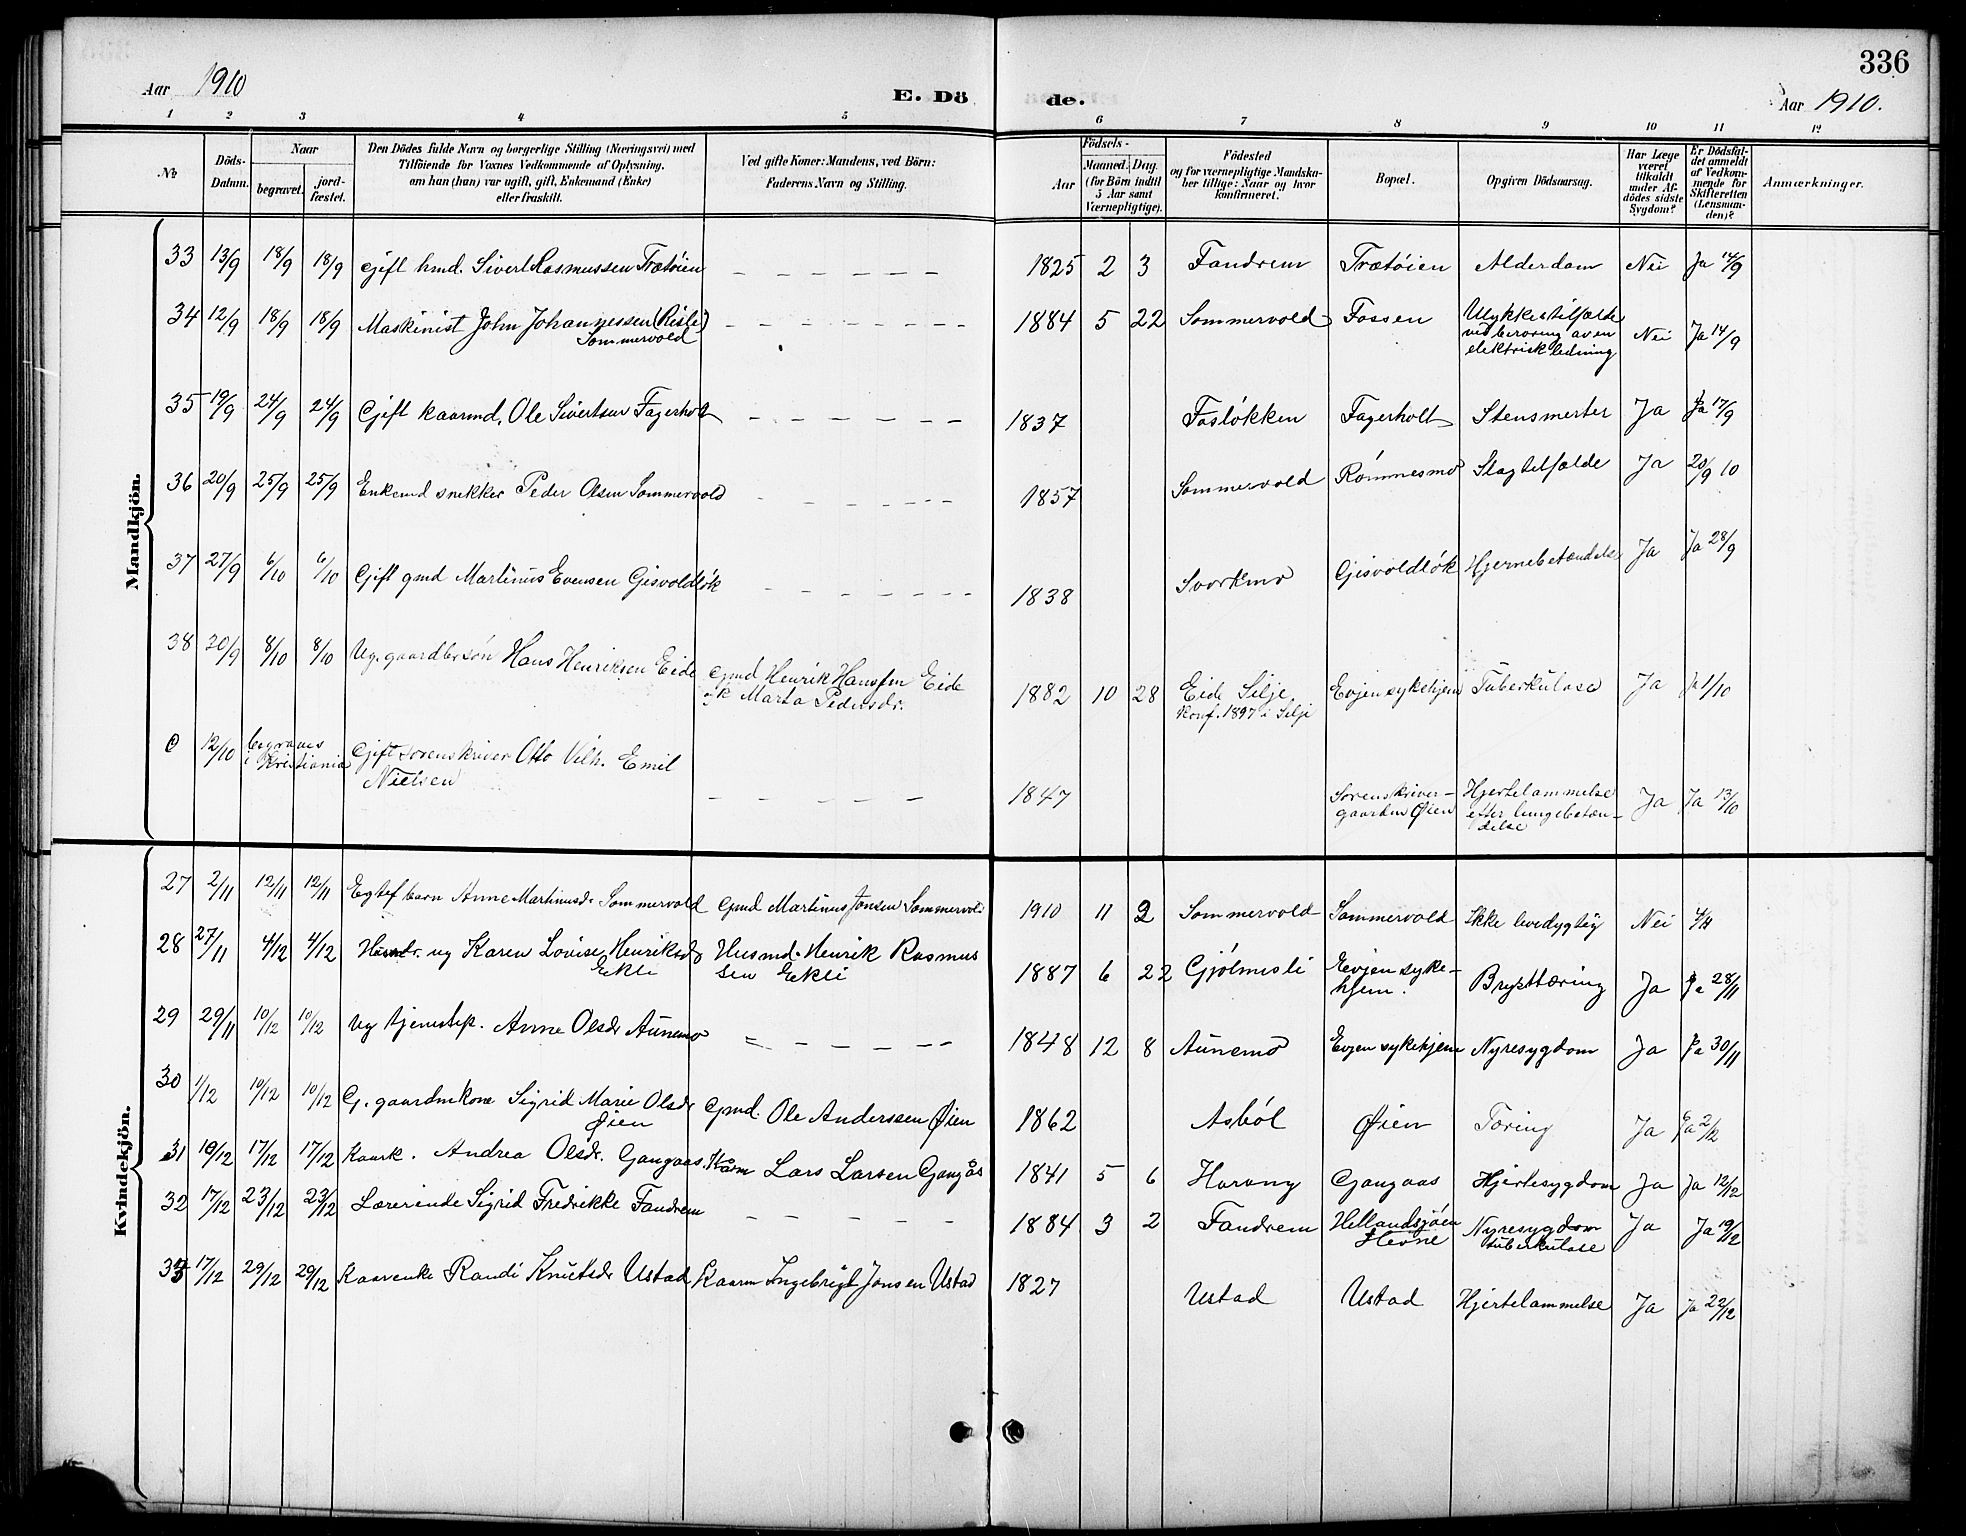 336
Aar 1910
E. Dö
de.
Aar 1910.
1 2 3 4 5 6 7 8 9 10 11 12
No
Döds-Datum.
Naar
begravet.
jord-fæstet.
Den Dödes fulde Navn og borgerlige Stilling (Næringsvei) med
Tilföiende for Voxnes Vedkommende af Oplysning,
om han (hun) var ugift, gift, Enkemand (Enke)
eller fraskilt.
Ved gifte Koner: Mandens, ved Börn:
Faderens Navn og Stilling.
Födsels-
Aar
Maaned. Dag.
(for Börn indtil
5 Aar samt
Værnepligtige).
Födested
og for værnepligtige Mandska-
ber tillige: Naar og hvor
konfirmeret.
Bopæl.
Opgiven Dödsaarsag.
Har Læge
været
tilkaldt
under Af-
dödes sidste
Sygdom?
Er Dödsfal-
det anmeldt
af Vedkom-
mende for
Skifteretten
(Lensman-
den)?
Anmærkninger.
Mandkjön.
33 13/9 18/9 18/9 gift hmd. Sivert Rasmussen Trætöien — — — — — — 1825 2 3 Fandrem Trætöien Alderdom Nei Ja 14/9
34 12/9 18/9 18/9 Maskinist John Johannessen (Risli) — — — — — — 1884 5 22 Sommervold Fossen Ulykkestilfælde Nei Ja 14/9
Sommervold ved beröring av en
elektrisk ledning
35 19/9 24/9 24/9 Gift kaarmd. Ole Sivertsen Fagerholt — — — — — — 1837 Fosløkken Fagerholt Stensmerter Ja Ja 17/9
36 20/9 25/9 25/9 Enkemd snekker Peder Olsen Sommervold — — — — — — 1857 Sommervold Römmesmo Slagtilfælde Ja 20/9 10
37 27/9 6/10 6/10 Gift gmd Martinus Evensen Gisvoldløk — — — — — — 1838 Svorkmo Gisvoldløk Hjernebetændelse Ja Ja 28/9
38 30/9 8/10 8/10 Ug. gaardbr søn Hans Henriksen Eide Gmd Henrik Hanssen Eide 1882 10 28 Eide Silje, Evjen sykehjem Tuberkulose Ja Ja 1/10
Marta Pedersdr. Konf. 1897 i Silje
12/10 begraves Gift sorenskriver Otto Vilh. Emil
i Kristiania Nielsen — — — — — 1847 Sorenskriver- Hjertelammelse Ja Ja 13/10
gaarden Øien efter lungebetæn-
delse
Kvindekjön.
27 2/11 12/11 12/11 Egtef barn Anne Martinusdr Sommervold Gmd Martinus Jonsen Sommervold 1910 11 2 Sommervold Sommervold Ikke levedygtig Nei 4/11
28 27/11 4/12 4/12 ug Karen Lovise Henriksdr Husmd. Henrik Rasmus 1887 6 22 Gjølmesli Evjen syke- Brysttæring Ja Ja 28/11
Ekli sen Ekli hjem.
29 29/11 10/12 10/12 Ug tjenestep. Anne Olsdr Aunemo — — — — — 1848 12 8 Aunemo Evjen sykehjem Nyresygdom Ja Ja 30/11
30 1/12 10/12 10/12 G. gaardmkone Sigrid Marie Olsdr Gmd. Ole Anderssen Øien 1862 Asböl Øien Tæring Ja Ja 2/12
Øien
31 10/12 17/12 17/12 Kaark. Andrea Olsdr. Gangaas. Kårm Lars Larsen Gangås 1841 5 6 Harang Gangaas Hjertesygdom Ja Ja 12/12
32 17/12 23/12 23/12 Lærerinde Sigrid Fredrikke Fandrem — — — — — 1884 3 2 Fandrem Hellandsjöen Nyresygdom Ja Ja 19/12
Hevne tuberkulose
33 17/12 29/12 29/12 Kaarenke Randi Knutsdr Ustad Kaarm Ingebrigt Jonsen Ustad 1827 Ustad Ustad Hjertelammelse Ja Ja 22/12